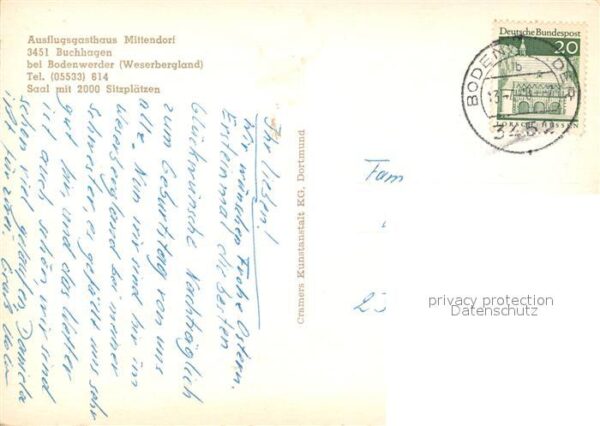 Ausflugsgasthaus Mittendorf
3451 Buchhagen
bei Bodenwerder (Weserbergland)
Tel. (05533) 614
Saal mit 2000 Sitzplätzen
Deutsche Bundespost
20
LORSCH/HESSEN
BODENWERDER
3452
Ihr Lieben!
Wir wünschen Frohe Ostern.
Ersteinmal die besten
Glückwünsche Nachträglich
zum Geburtstag von uns
alle. Nun wir sind hir im
Weserbergland bei meiner
Schwester, es gefällt uns sehr
gut hir, und das Wetter
ist auch schön, wir sind
schon viel gelaufen, Daniela
Cramers Kunstanstalt KG. Dortmund
Fam
23
privacy protection
Datenschutz